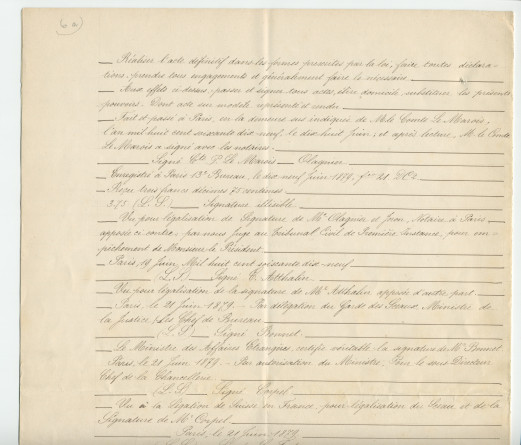 6 a)
Réaliser l'acte définitif dans les formes prescrites par la loi, faire toutes déclara-
tions, prendre tous engagements et généralement faire le nécessaire
Aux effets ci-dessus, passer et signer tous actes, élire domicile, substituer les présents
pouvoirs. Dont acte sur modèle représenté et rendu
Fait et passé à Paris, en la demeure sus indiquée de M. le Comte Le Marois,
L'an mil huit cent soixante dix-neuf, le dix-huit Juin; et après lecture, M. le Comte
Le Marois a signé avec les notaires.
Signé Cte P. Le Marois
Enregistré à Paris 13e Bureau, le dix neuf Juin 1879, fo 21
Reçu trois francs décimes 75 centimes
3.75 (L.S) Signature illisible.
Vu pour légalisation de signature de Me et Notaire à Paris
apposée ci-contre, par nous Juge au Tribunal Civil de Première Instance, pour em-
pêchement de Monsieur le Président
Paris, 19 Juin, Mil huit cent soixante dix-neuf
(L.S) Signé
Vu pour légalisation de la signature de Mr apposée d'autre part
Paris, le 21 Juin 1879. Par délégation du Garde des Sceaux, Ministre de
la Justice, Le Chef de Bureau
(L.S) Signé Bonnet
Le Ministre des Affaires Etrangères, certifie véritable la signature de Mr Bonnet
Paris, le 21 Juin 1879. Par autorisation du Ministre, Pour le sous Directeur
Chef de la Chancellerie.
(L.S) Signé Corpel
Vu à la Légation de Suisse en France, pour légalisation du Sceau et de la
Signature de Mr Corpel
Paris, le 21 Juin 1879.